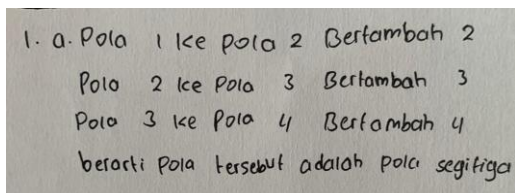 1. a. Pola 1 ke pola 2 Bertambah 2
Pola 2 ke Pola 3 Bertambah 3
Pola 3 ke Pola 4 Bertambah 4
berarti Pola tersebut adalah pola segitiga